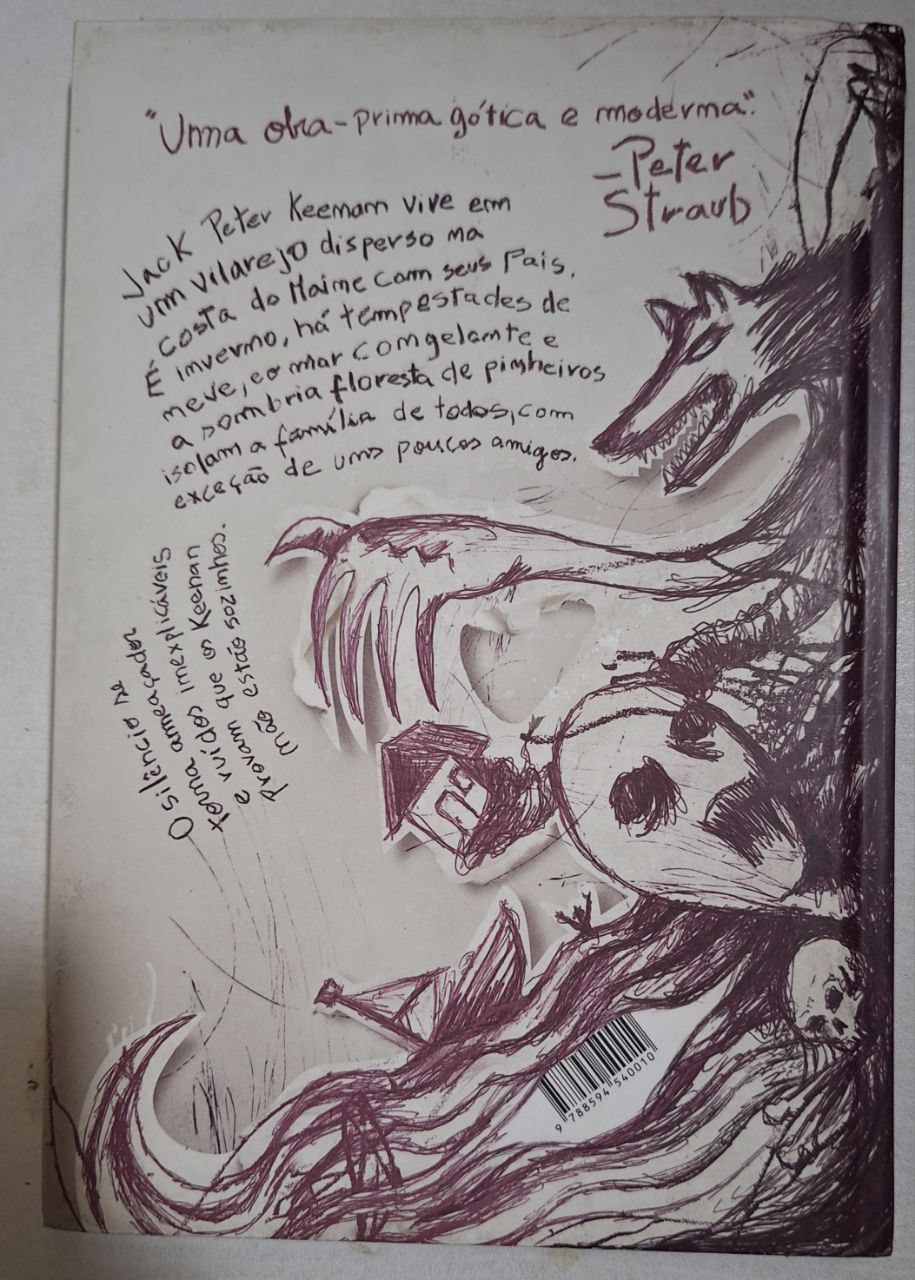 "Uma obra-prima gótica e moderna".
—Peter
Straub
Jack Peter Keenan vive em
um vilarejo disperso na
costa do Maine com seus Pais.
É inverno, há tempestades de
neve, e o mar congelante e
a sombria floresta de pinheiros
isolam a família de todos, com
exceção de uns poucos amigos.
O silêncio na
forma ameaçador
e ruídos inexplicáveis
provam que os Keenan
não estão sozinhos.
9 788594 540010